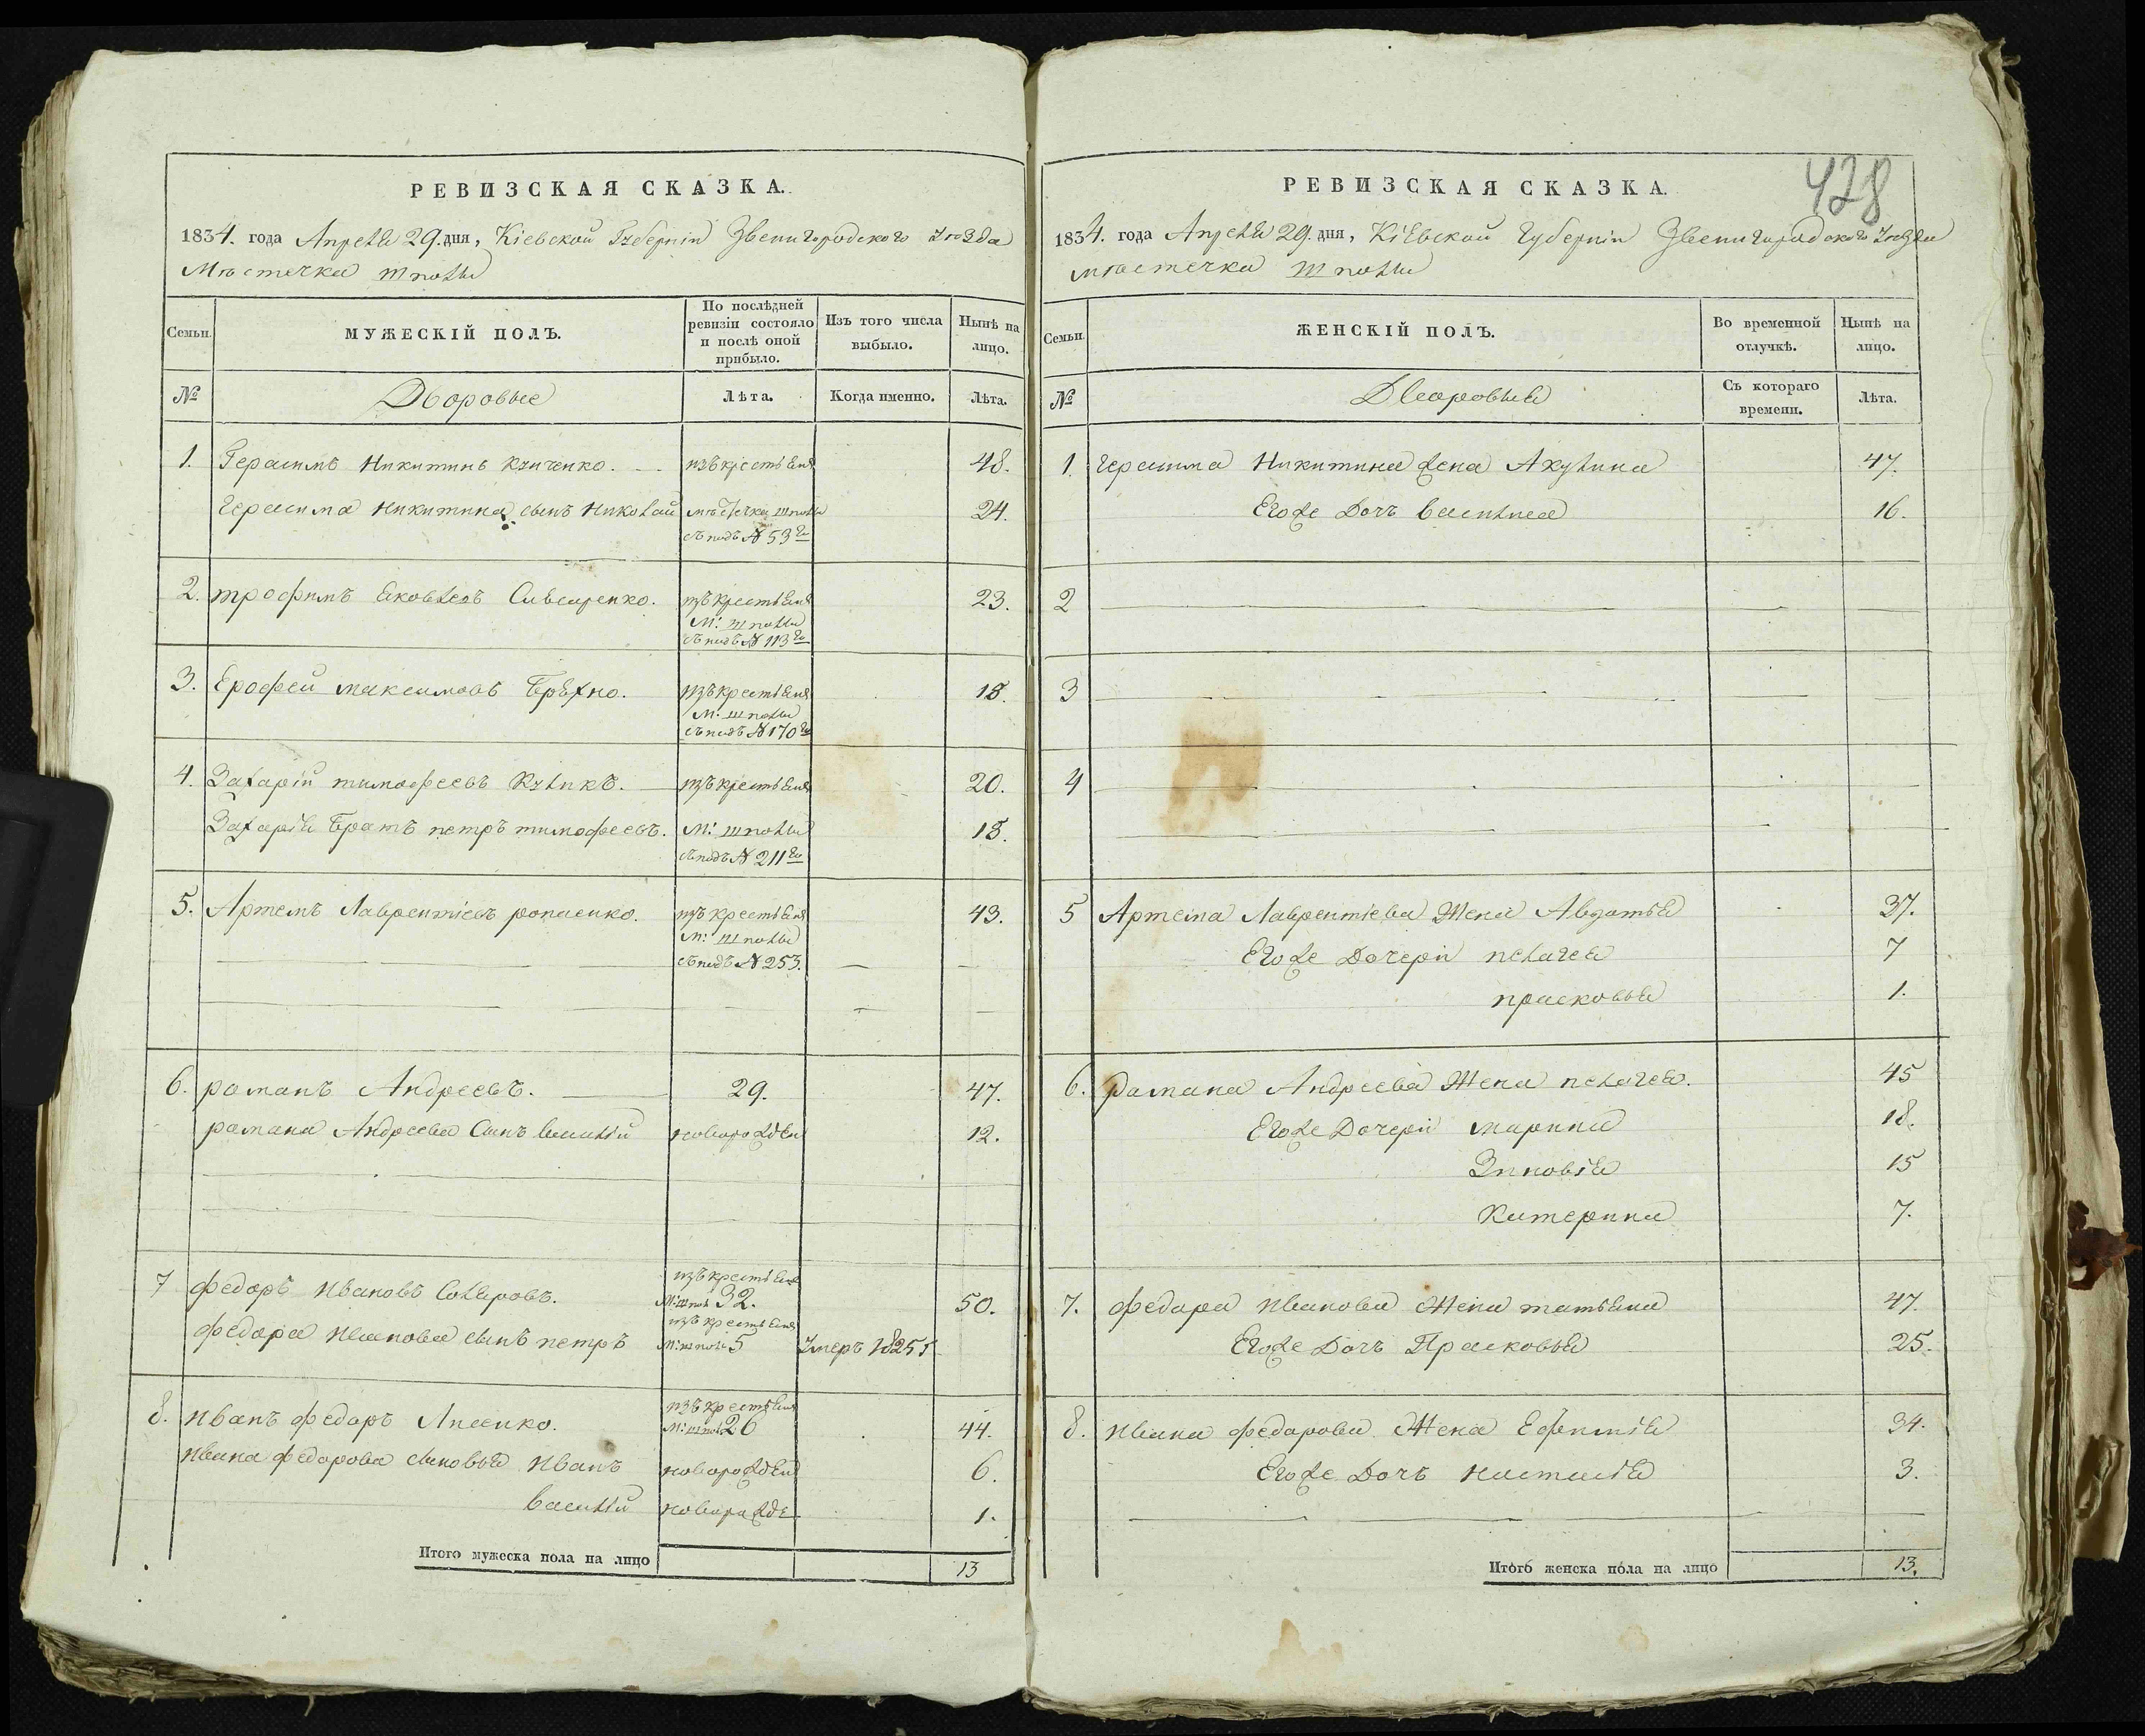 РЕВИЗСКАЯ СКАЗКА.
1834. года Апреля 29. дня, Кіевской Губерніи Звенигородского уѣзда
Мѣстечка Шполы
Семьи.
МУЖЕСКІЙ ПОЛЪ.
По послѣдней ревизіи состояло и послѣ оной прибыло.
Изъ того числа выбыло.
Нынѣ на лицо.
№
Дворовые
Лѣта.
Когда именно.
Лѣта.
1. Герасимъ Никитинъ Кзиченко. изъ крестьянъ 48.
Герасима Никитина сынъ Николай местечка Шполы 24.
съ подъ № 53го
2. Трофимъ Яковлевъ Сивсаренко. изъ крестьянъ 23.
М: Шполы
съ подъ № 113го
3. Ерофей Максимовъ Брѣхно. изъ крестьянъ 18.
М: Шполы
съ подъ № 170го
4. Захарій Тимофеевъ Куликъ. изъ крестьянъ 20.
Захарія Братъ Петръ Тимофеевъ. М: Шполы 18.
съ подъ № 211го
5. Артемъ Лаврентіевъ изъ крестьянъ 43.
М: Шполы
съ подъ № 253.
6. Романъ Андреевъ. 29. 47.
Романа Андреева Сынъ Василій новорожден 12.
изъ крестьян
7 Федоръ Ивановъ М: шпол 32. 50.
изъ крестьян
Федора Иванова сынъ Петръ М: шпол 5 Умеръ 1825 г
изъ крестьян
8. Иванъ Федоръ М: шпол 26 44.
Ивана Федорова сыновья Иванъ новорожден 6.
Василій новорожде 1.
Итого мужеска пола на лицо 13
428
РЕВИЗСКАЯ СКАЗКА.
1834. года Апреля 29. дня, Кіевской Губерніи Звенигородского уѣзда
Мѣстечка Шполы
Семьи.
ЖЕНСКІЙ ПОЛЪ.
Во временной отлучкѣ.
Нынѣ на лицо.
№
Дворовыя
Съ котораго времени.
Лѣта.
1. Герасима Никитина жена Акулина 47.
Егоже Дочь Василиса 16.
2
3
4
5 Артема Лаврентіева Жена Авдотья 37.
Егоже Дочери Пелагея 7
Прасковья 1.
6. Романа Андреева Жена Пелагея. 45
Егоже Дочери Марина 18.
Зиновія 15
Катерина 7.
7. Федора Иванова Жена Татьяна 47.
Егоже Дочь Прасковья 25.
8. Ивана Федорова Жена Ефимія 34.
Егоже Дочь Настасія 3.
Итого женска пола на лицо 13.